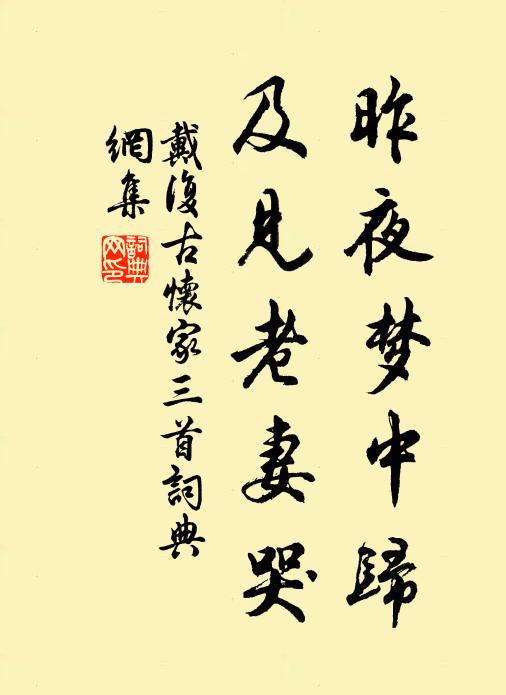 昨夜梦中歸
及見老妻哭
戴復古懷家三首詞典
網集
詞典
网印